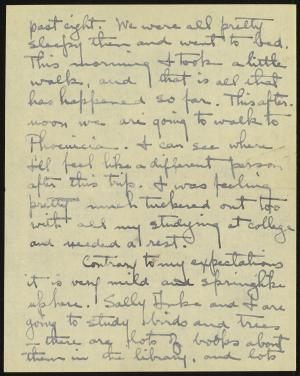 past eight. We were all pretty
sleepy then and went to bed.
This morning I took a little
walk, and that is all that
has happened so far. This after-
noon we are going to walk to
Phoenicia. I can see where
I'll feel like a different person
after this trip. I was feeling
pretty much tuckered out too
with all my studying at college
and needed a rest.
Contrary to my expectations
it is very mild and springlike
up here. Sally and I are
going to study birds and trees
- there are lots of books about
them in the library, and lots